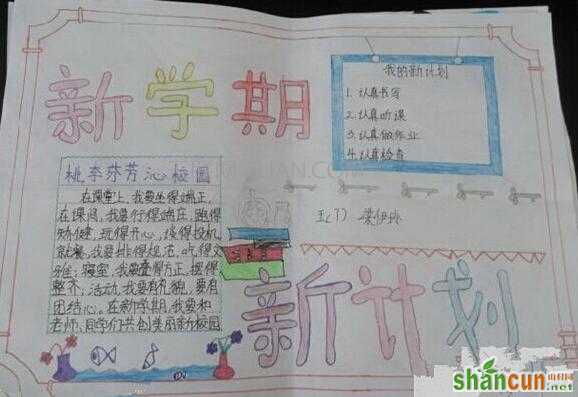 新学期
我的新计划
1.认真书写
2.认真听课
3.认真做作业
4.认真检查
桃李芬芳沁校园
在课堂上,我要坐得端正,
在课间,我要行得端庄,跑得
矫健,玩得开心,谈得投机
就餐,我要排得规范,吃得文
雅;寝室,我要叠得方正,摆得
整齐;活动,我要有礼貌,要有
团结心。在新学期,我要和
老师,同学们共创美丽新校园
五(7)
新计划
shancun
山村网
.net